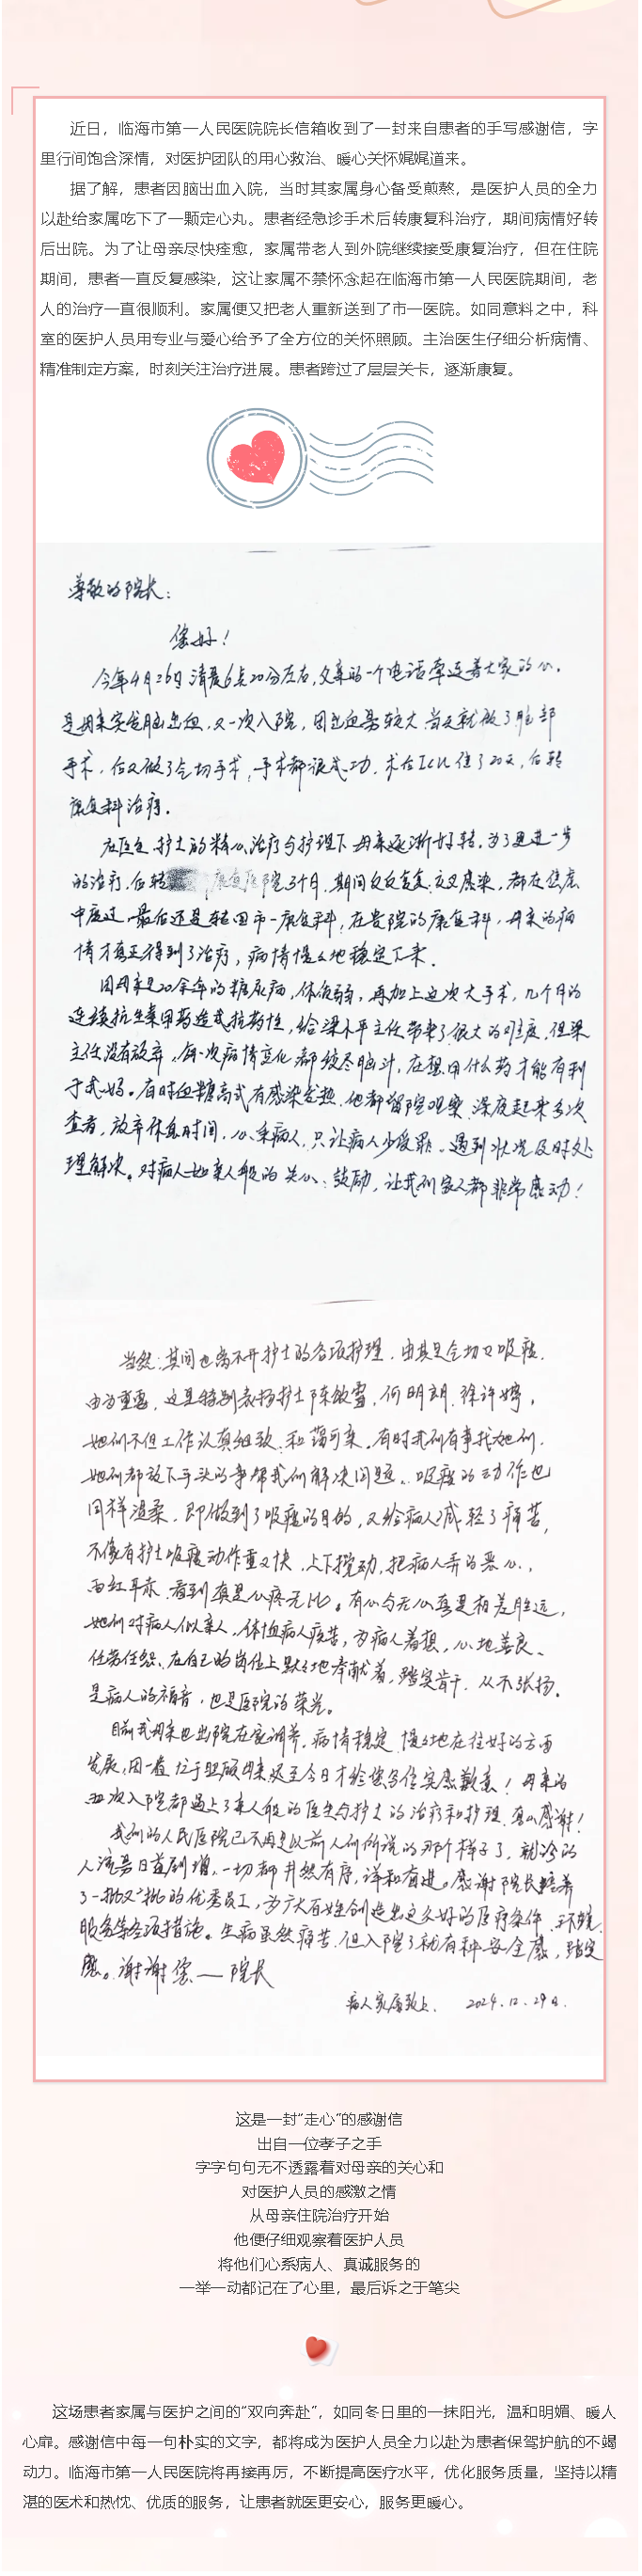 近日，临海市第一人民医院院长信箱收到了一封来自患者的手写感谢信，字
里行间饱含深情，对医护团队的用心救治、暖心关怀娓娓道来。
据了解，患者因脑出血入院，当时其家属身心备受煎熬，是医护人员的全力
以赴给家属吃下了一颗定心丸。患者经急诊手术后转康复科治疗，期间病情好转
后出院。为了让母亲尽快痊愈，家属带老人到外院继续接受康复治疗，但在住院
期间，患者一直反复感染，这让家属不禁怀念起在临海市第一人民医院期间，老
人的治疗一直很顺利。家属便又把老人重新送到了市一医院。如同意料之中，科
室的医护人员用专业与爱心给予了全方位的关怀照顾。主治医生仔细分析病情、
精准制定方案，时刻关注治疗进展。患者跨过了层层关卡，逐渐康复。
尊敬的院长：
您好！
今年4月26日清晨6点20分左右，父亲的一个电话牵连着大家的心，
是母亲突发脑出血，又一次入院，因出血量较大，当天就做了脑部
手术，后又做了气切手术，手术都很成功，术后ICU住了20天，后转
康复科治疗。
在医生、护士的精心治疗与护理下，母亲逐渐好转，为了更进一步
的治疗，后转康复医院3个月，期间反反复复，交叉感染，都在焦虑
中度过，最后还是转回市一康复科，在贵院的康复科，母亲的病
情才真正得到了治疗，病情慢慢地稳定下来。
因母亲是20余年的糖尿病，体质弱，再加上这次大手术，几个月的
连续抗生素用药造成抗药性，给梁小平主任带来了很大的难度，但梁
主任没有放弃，每一次病情变化都绞尽脑汁，在想用什么药才能有利
于我妈。有时血糖高或有感染发热，他都留院观察，深夜起来多次
查看，放弃休息时间，心系病人，只让病人少受罪。遇到状况及时处
理解决。对病人如亲人般的关心、鼓励，让我们家人都非常感动！
当然，其间也离不开护士的各项护理，由其是气切口吸痰，
由为重要，这里特别表扬护士陈敏雪，何明月，徐许婷，
她们不但工作认真细致，和蔼可亲，有时我们有事找她们，
她们都放下手头的事帮我们解决问题。吸痰的动作也
同样温柔，即做到了吸痰的目的，又给病人减轻了痛苦，
不像有护士吸痰动作重又快，上下搅动，把病人弄的恶心，
面红耳赤，看到真是心疼无比。有心与无心真是相差胜远，
她们对病人似亲人，体恤病人疾苦，为病人着想，心地善良、
任劳任怨，在自己的岗位上默默地奉献着，踏实肯干，从不张扬。
是病人的福音，也是医院的荣光。
目前我母亲也出院在家调养，病情稳定，慢慢地在往好的方面
发展，因一直忙于照顾母亲
母亲的
次入院都遇上了亲人般的医生与护士的治疗和护理，真心感谢！
我们的人民医院已不再是以前人们所说的那个样子了，就诊的
人流量日益剧增，一切都井然有序，详和奋进。感谢院长培养
了一批又一批的优秀员工，为广大百姓创造出这么好的医疗条件、环境、
服务等各项措施。生病虽然痛苦，但入院了就有种安全感，踏实
感。谢谢您——院长
病人家属致上。 2024.12.29日.
这是一封“走心”的感谢信
出自一位孝子之手
字字句句无不透露着对母亲的关心和
对医护人员的感激之情
从母亲住院治疗开始
他便仔细观察着医护人员
将他们心系病人、真诚服务的
一举一动都记在了心里，最后诉之于笔尖
这场患者家属与医护之间的“双向奔赴”，如同冬日里的一抹阳光，温和明媚、暖人
心扉。感谢信中每一句朴实的文字，都将成为医护人员全力以赴为患者保驾护航的不竭
动力。临海市第一人民医院将再接再厉，不断提高医疗水平，优化服务质量，坚持以精
湛的医术和热忱、优质的服务，让患者就医更安心，服务更暖心。